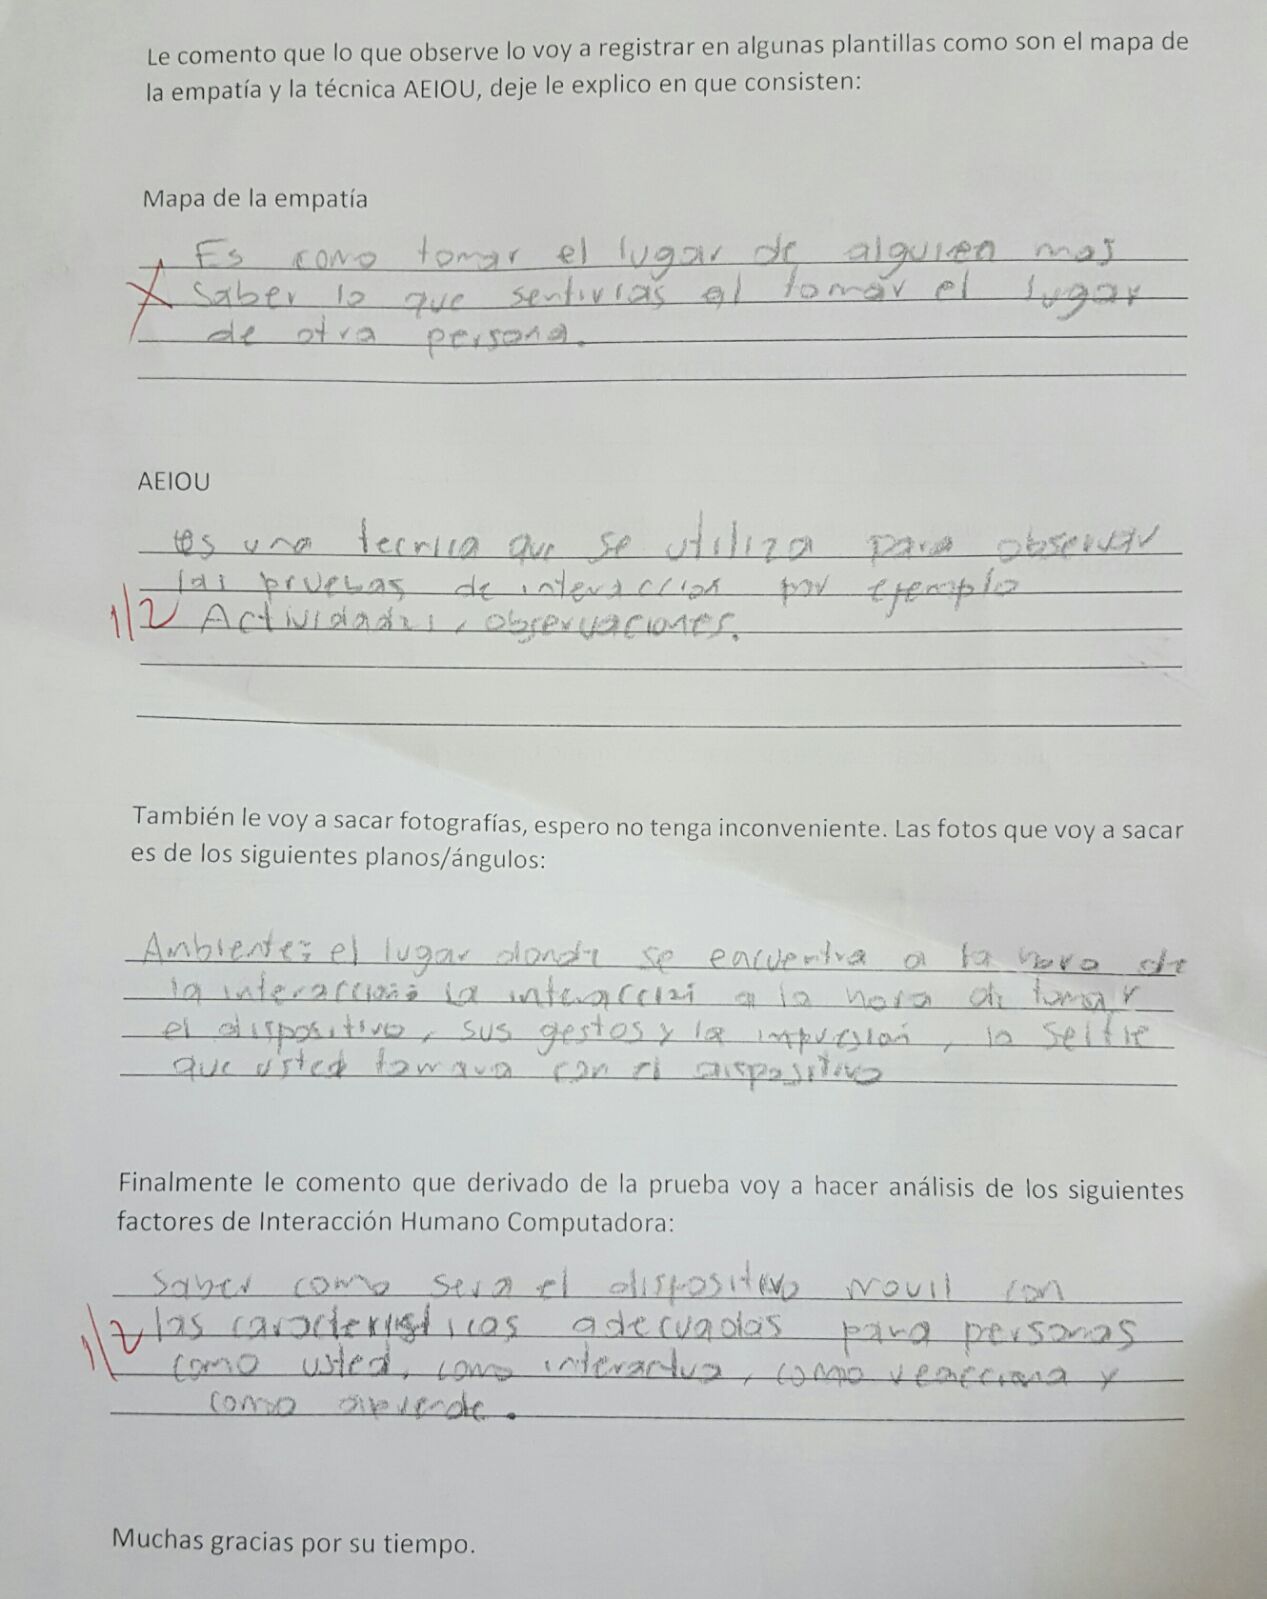 Le comento que lo que observe lo voy a registrar en algunas plantillas como son el mapa de
la empatía y la técnica AEIOU, deje le explico en que consisten:
Mapa de la empatía
Es como tomar el lugar de alguien mas
Saber lo que sentirias al tomar el lugar
de otra persona.
AEIOU
es una tecnica que se utiliza para observar
las pruebas de interaccion por ejemplo
1/2 Actividades, observaciones.
También le voy a sacar fotografías, espero no tenga inconveniente. Las fotos que voy a sacar
es de los siguientes planos/ángulos:
Ambiente: el lugar donde se encuentra a la hora de
la interaccion la interaccion a la hora de tomar
el dispositivo, sus gestos y la impresion, la selfie
que usted tomara con el dispositivo
Finalmente le comento que derivado de la prueba voy a hacer análisis de los siguientes
factores de Interacción Humano Computadora:
Saber como sera el dispositivo movil con
1/2 las caracteristicas adecuadas para personas
como usted, como interactua, como reacciona y
como aprende.
Muchas gracias por su tiempo.